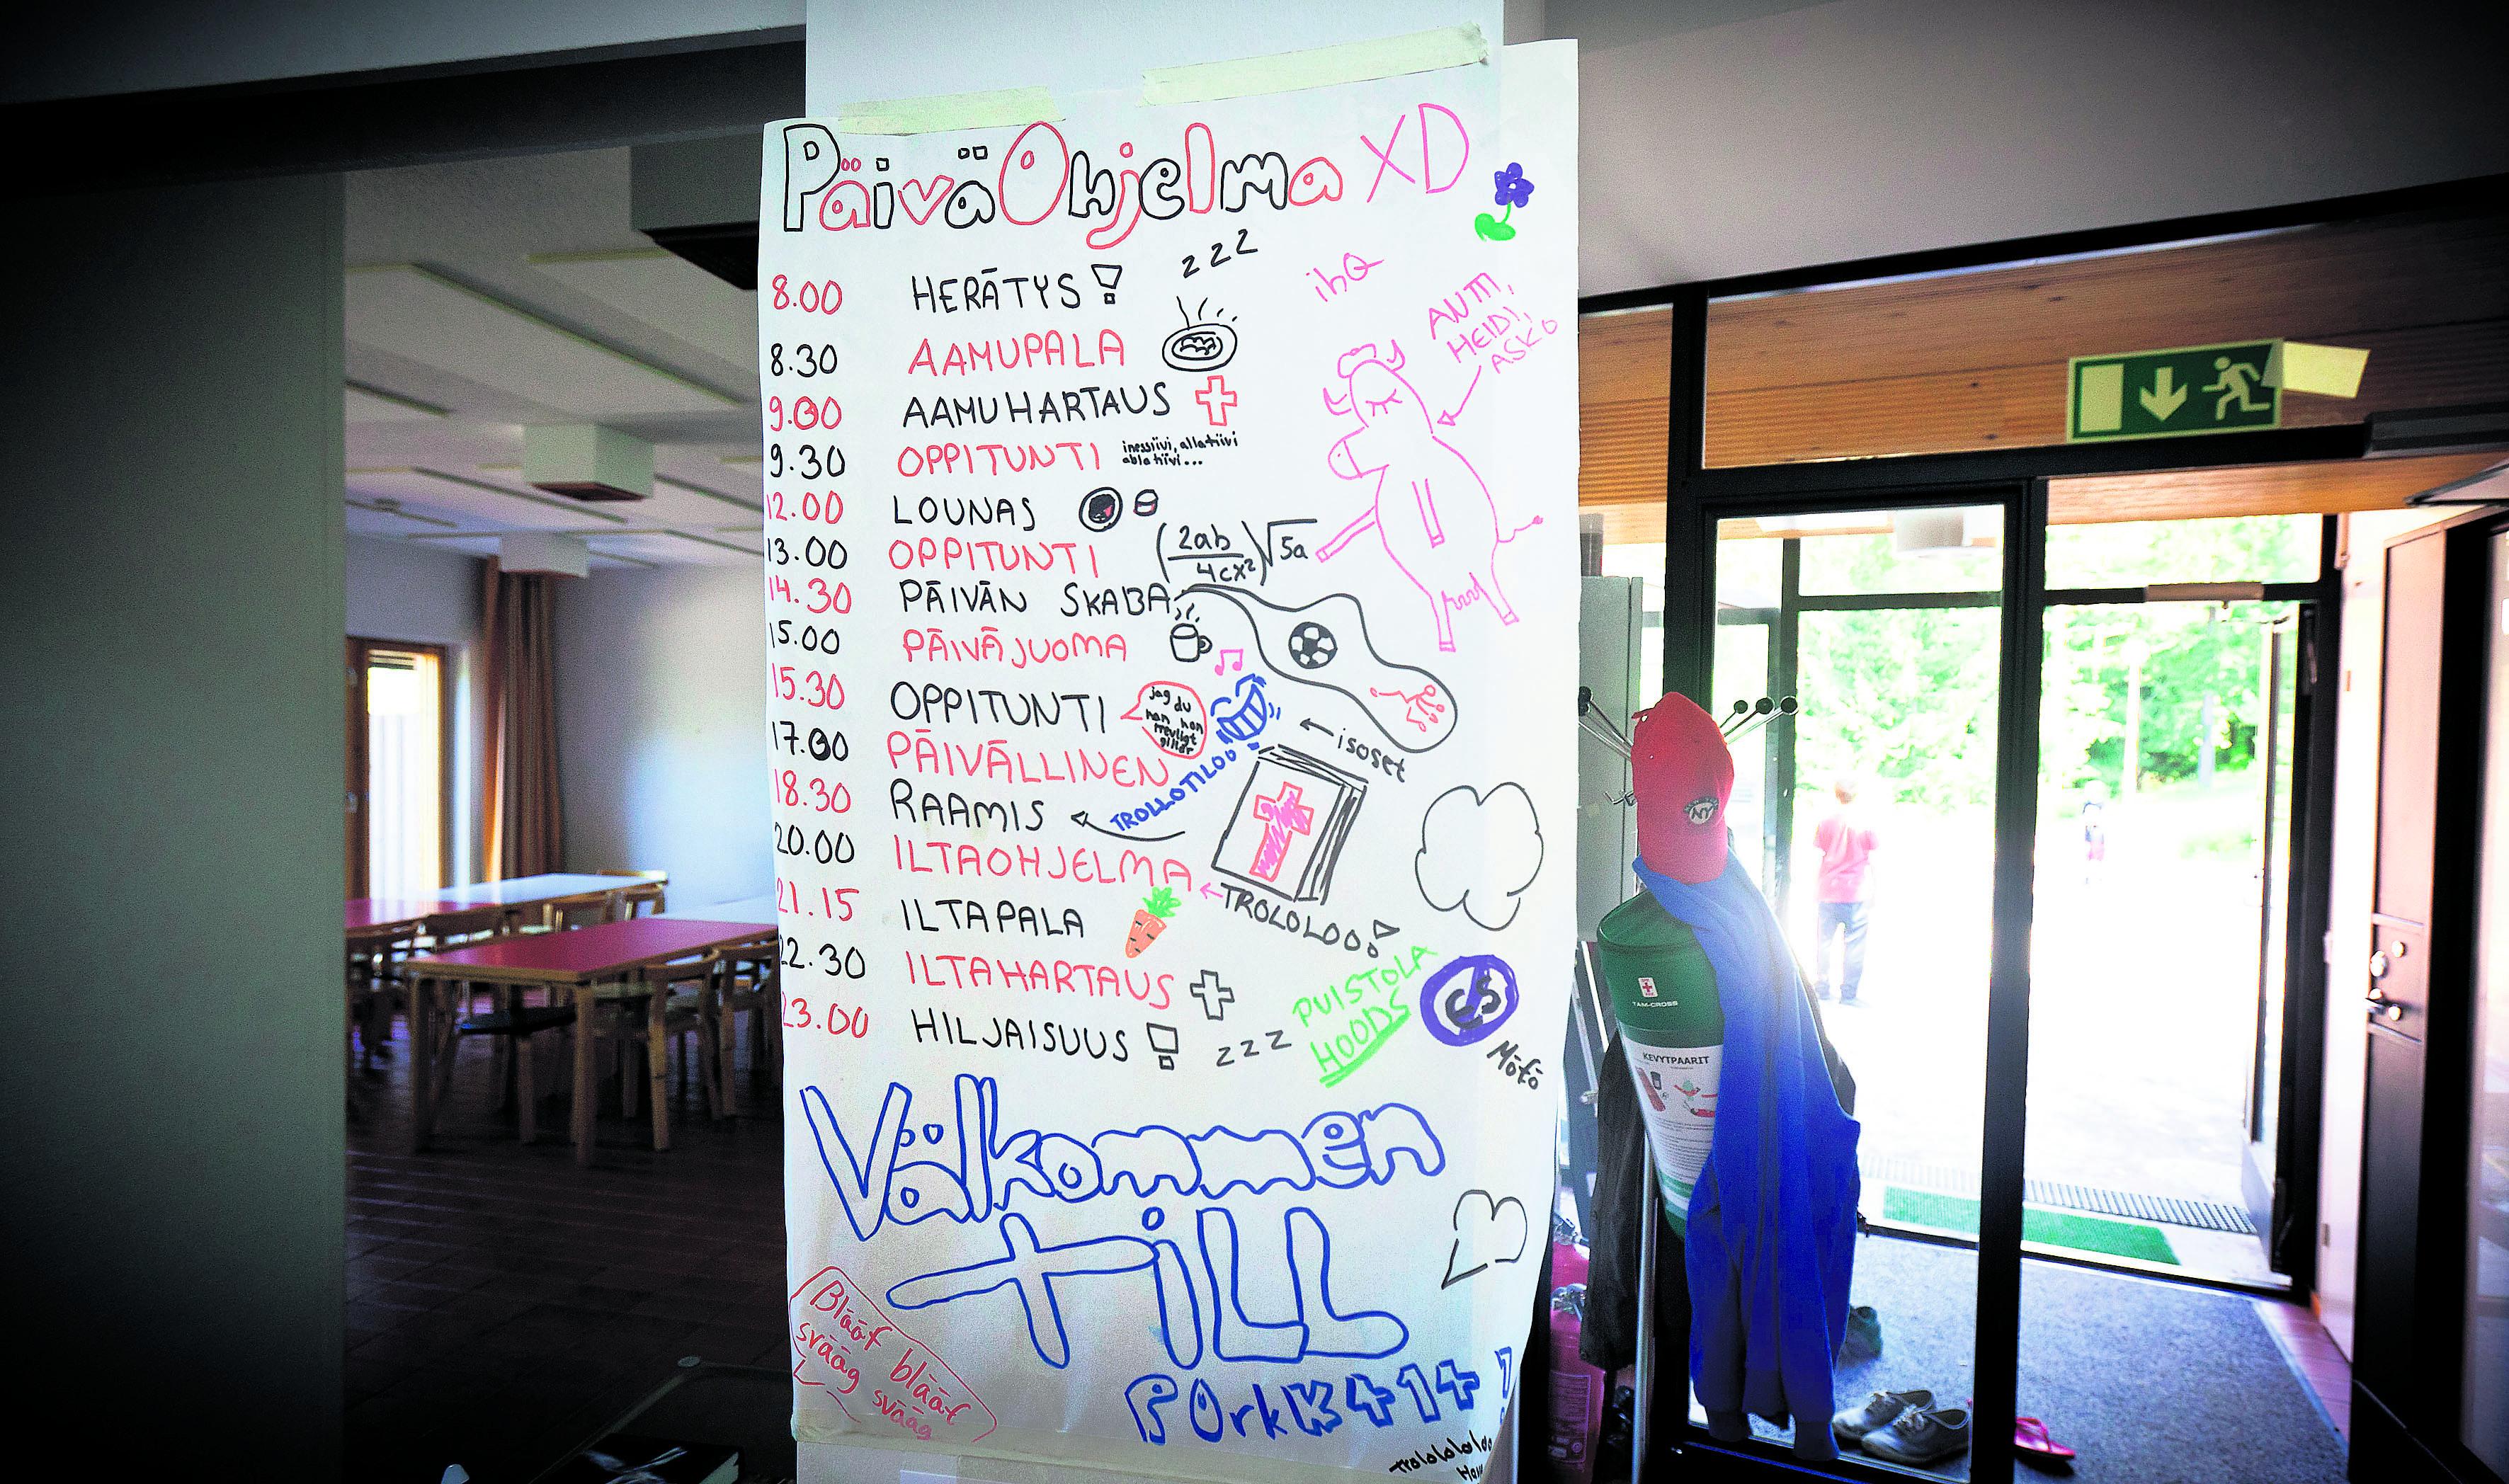 PäiväOhjelma XD
8.00 HERÄTYS! zzz
ihQ
ANTTI,
HEIDI,
ASKO
8.30 AAMUPALA
9.00 AAMUHARTAUS
9.30 OPPITUNTI inessiivi, allatiivi
ablatiivi...
12.00 LOUNAS
13.00 OPPITUNTI (2ab/4cx²)√5a
14.30 PÄIVÄN SKABA
15.00 PÄIVÄJUOMA
15.30 OPPITUNTI
jag du
han hon
trevligt
isoset
17.00 PÄIVÄLLINEN
TROLLOTILOO
18.30 RAAMIS
20.00 ILTAOHJELMA
TROLOLOO!
21.15 ILTAPALA
22.30 ILTAHARTAUS
PUISTOLA
HOODS
CS
Mötö
23.00 HILJAISUUS! zzz
Välkommen
till
Blääf blääf
svääg svääg
PORKK414!
NY
TAM-CROSS
KEVYTPAARIT